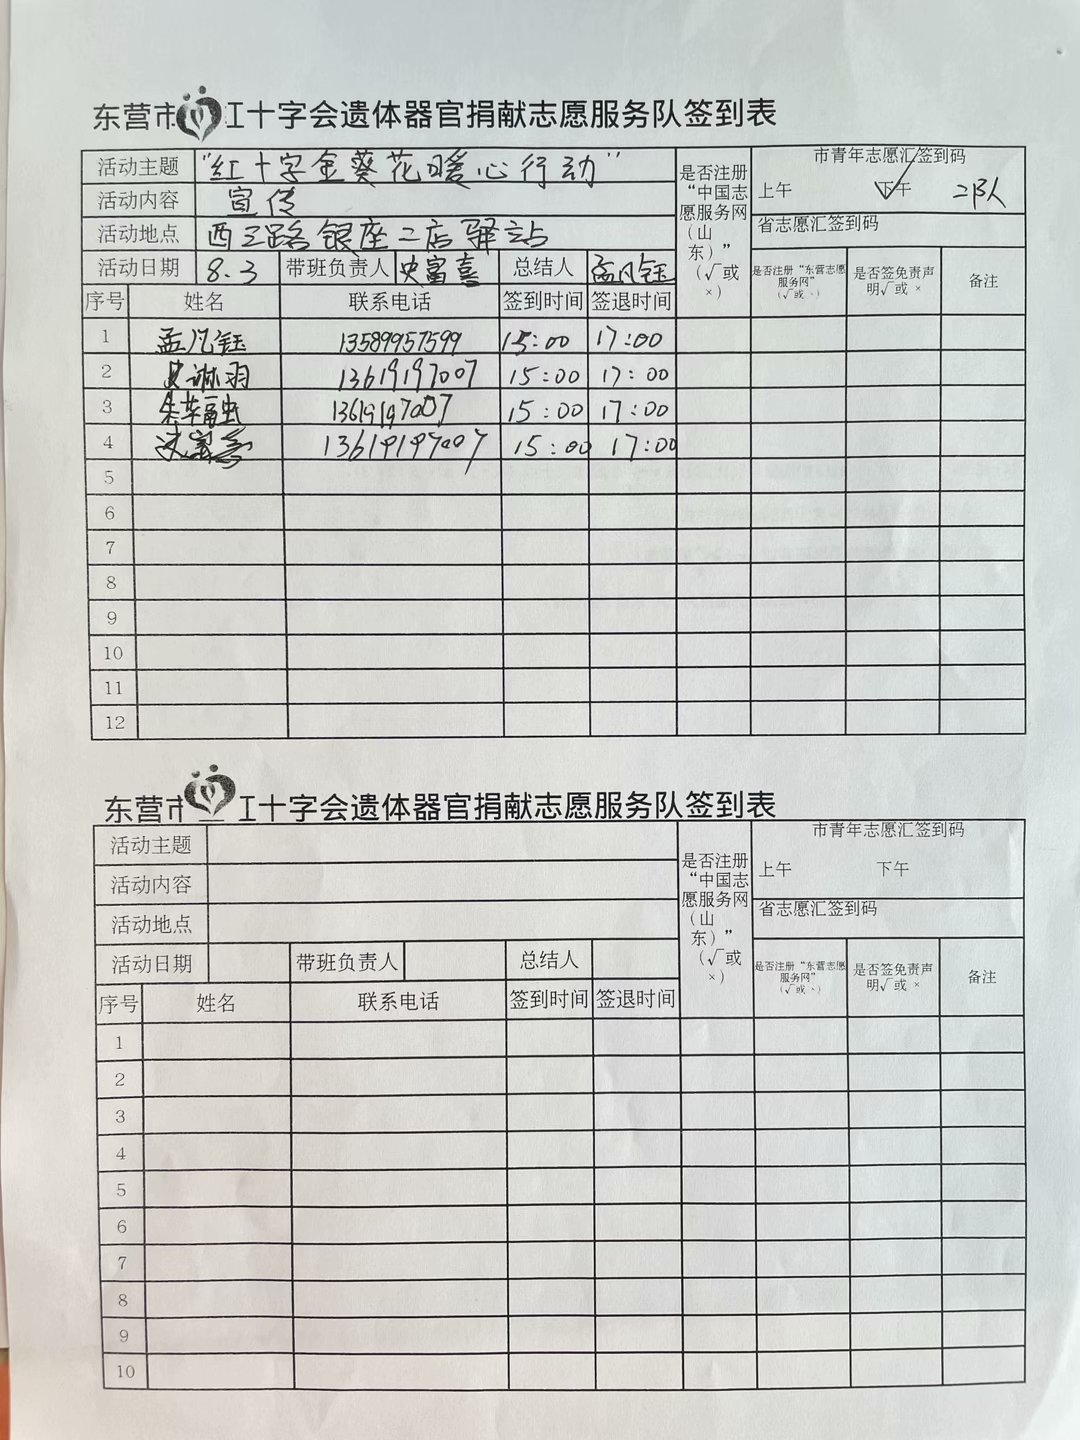 东营市红十字会遗体器官捐献志愿服务队签到表
活动主题 “红十字金葵花暖心行动”
活动内容 宣传
活动地点 西三路银座二店驿站
活动日期 8.3 带班负责人 史富喜 总结人 孟凡钰
是否注册“中国志愿服务网(山东)”(√或×)
市青年志愿汇签到码
上午 下午 √ 二队
省志愿汇签到码
是否注册“东营志愿服务网”(√或、) 是否签免责声明√或 × 备注
序号 姓名 联系电话 签到时间 签退时间
1 孟凡钰 13589957599 15:00 17:00
2 史淋羽 13619197007 15:00 17:00
3 13619197007 15:00 17:00
4 13619197007 15:00 17:00
5
6
7
8
9
10
11
12
东营市红十字会遗体器官捐献志愿服务队签到表
活动主题
活动内容
活动地点
活动日期 带班负责人 总结人
是否注册“中国志愿服务网(山东)”(√或×)
市青年志愿汇签到码
上午 下午
省志愿汇签到码
是否注册“东营志愿服务网”(√或、) 是否签免责声明√或 × 备注
序号 姓名 联系电话 签到时间 签退时间
1
2
3
4
5
6
7
8
9
10